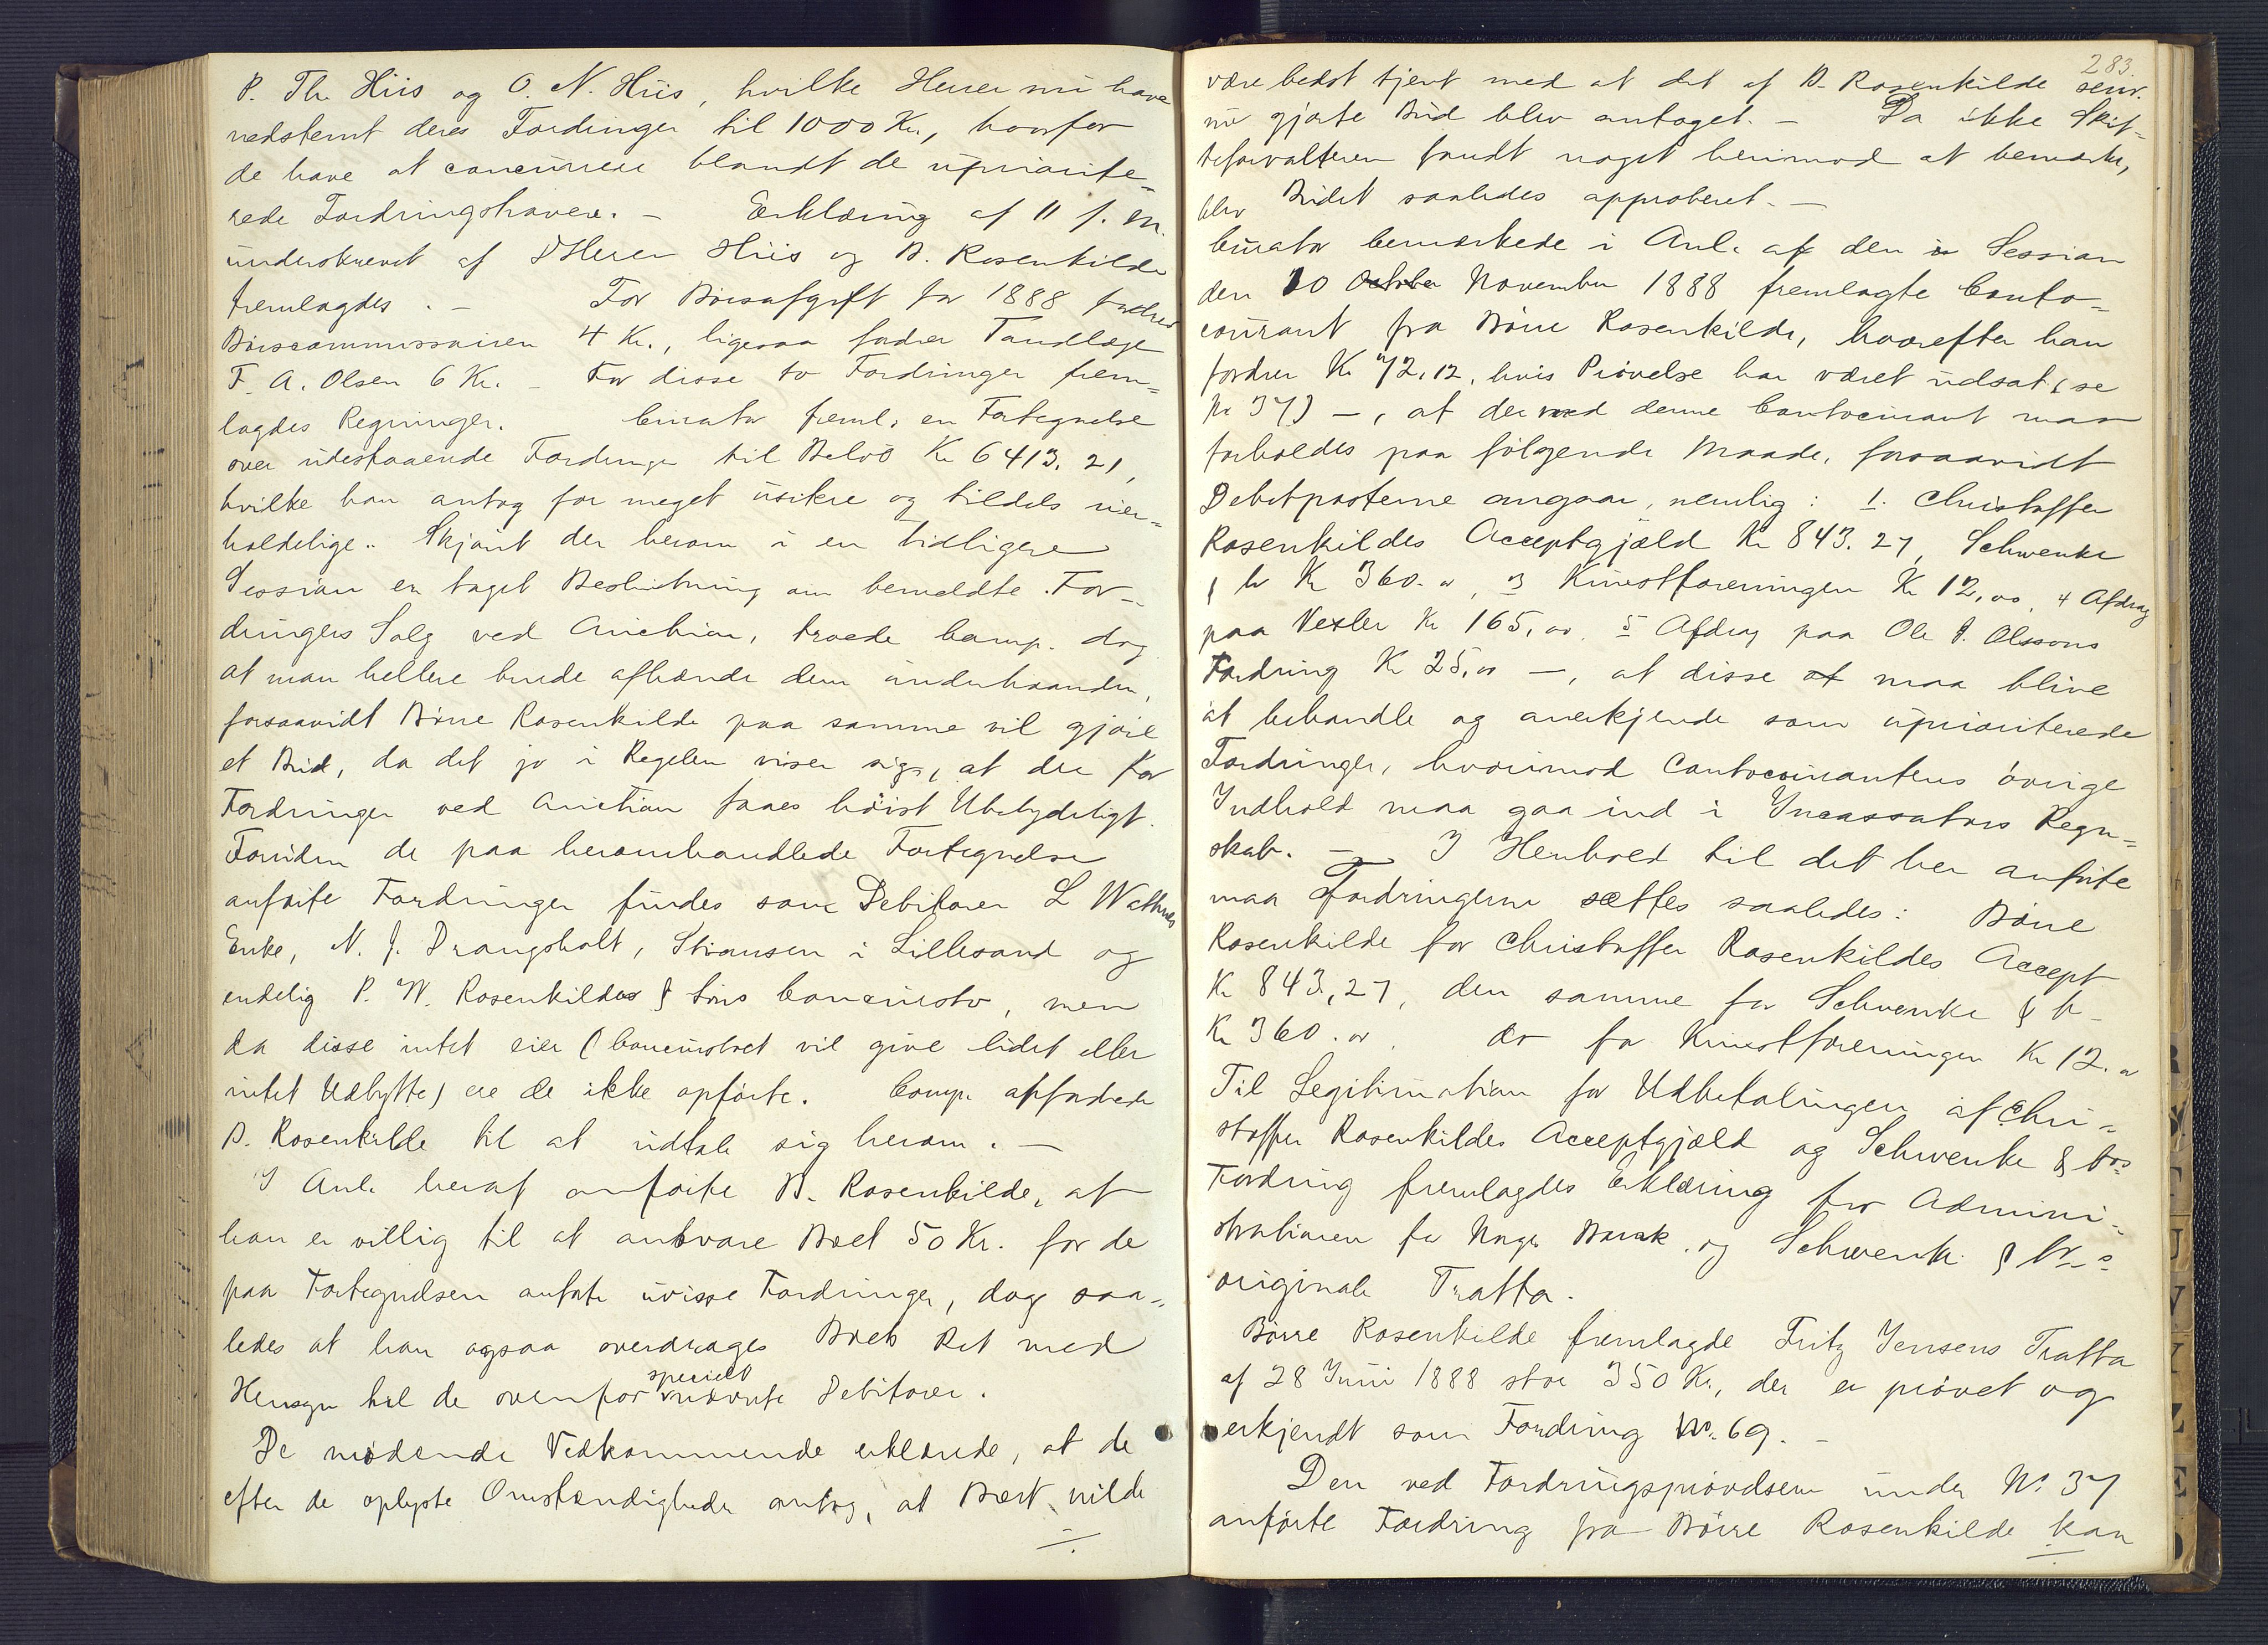 P. Th. Hiis og O. N. Hiis, hvilke Herrer nu have
nedstemt deres Fordringer til 1000 Kr., hvorfor
de have at concurrere blandt de upriorite=
rede Fordringshavere. – Erklæring af 11 f. M.
underskrevet af DHerrer Hiis og B. Rosenkilde
fremlagdes. – For Børsafgift for 1888 fordrer
Børscommissairen 4 Kr., ligesaa fordrer Tandlæge
F. A. Olsen 6 Kr. – For disse to Fordringer frem=
lagdes Regninger. Curator freml. en Fortegnelse
over udestaaende Fordringer til Beløb Kr 6413.21,
hvilke han antog for meget usikre og tildels uer=
holdelige. Skjønt der herom i en tidligere
Session er taget Beslutning om bemeldte For=
dringers Salg ved Auction, troede Comp. dog
at man hellere burde afhænde dem underhaanden,
forsaavidt Børre Rosenkilde paa samme vil gjøre
et Bud, da det jo i Regelen viser sig, at der for
Fordringer ved Auction faaes høist Ubetydeligt.
Foruden de paa heromhandlede Fortegnelse
anførte Fordringer findes som Debitorer L Wathnes
Enke, N. J. Drangsholt, Stiansen i Lillesand og
endelig P. W. Rosenkildes & Søns Concursbo, men
da disse intet eier (Concursboet vil give lidet eller
intet Udbytte) ere de ikke opførte. Comp. opfordrede
B. Rosenkilde til at udtale sig herom. –
I Anl. heraf anførte B. Rosenkilde, at
han er villig til at ansvare Boet 50 Kr. for de
paa Fortegnelsen anførte uvisse Fordringer, dog saa=
ledes at han ogsaa overdrages Boets Ret med
specielt
Hensyn til de ovenfor nævnte Debitorer.
De mødende Vedkommende erklærede, at de
efter de oplyste Omstændigheder antog, at Boet vilde
283.
være bedst tjent med at det af B. Rosenkilde
nu gjorte Bud blev antaget. – Da ikke Skif=
teforvalteren fandt noget herimod at bemærke,
blev Budet saaledes approberet. –
Curator bemærkede i Anl. af den i Session
den 10 October November 1888 fremlagte Conto=
courant fra Børre Rosenkilde, hvorefter han
fordrer Kr 72,12, hvis Prøvelse har været udsat (se
No 37) –, at der med denne Contocourant maa
forholdes paa følgende Maade, forsaavidt
Debetposterne angaar, nemlig: 1. Christoffer
Rosenkildes Acceptgjæld Kr 843.27, Schwenke
& Co Kr 360.00, 3 Kunstforeningen Kr 12,00, 4 Afdrag
paa Vexler Kr 165,00. 5 Afdrag paa Ole J. Olssons
Fordring Kr 25,00 –, at disse at maa blive
at behandle og anerkjende som uprioriterede
Fordringer, hvorimod Contocourantens øvrige
Indhold maa gaa ind i Incassators Regn=
skab. – I Henhold til det her anførte
maa Fordringerne sættes saaledes: Børre
Rosenkilde for Christoffer Rosenkildes Accept
Kr 843,27, den samme for Schwenke & Co
Kr 360.00, do for Kunstforeningen Kr 12.00
Til Legitimation for Udbetalingen af Chri=
stoffer Rosenkildes Acceptgjæld og Schwenke & Cos
Fordring fremlagdes Erklæring fra Admini=
strationen for Norges Bank og Schwenke & Cos
originale Tratta.
Børre Rosenkilde fremlagde Fritz Jensens Tratta
af 28 Juni 1888 stor 350 Kr., der er prøvet og
erkjendt som Fordring No. 69. –
Den ved Fordringsprøvelsen under No 37
anførte Fordring fra Børre Rosenkilde kan